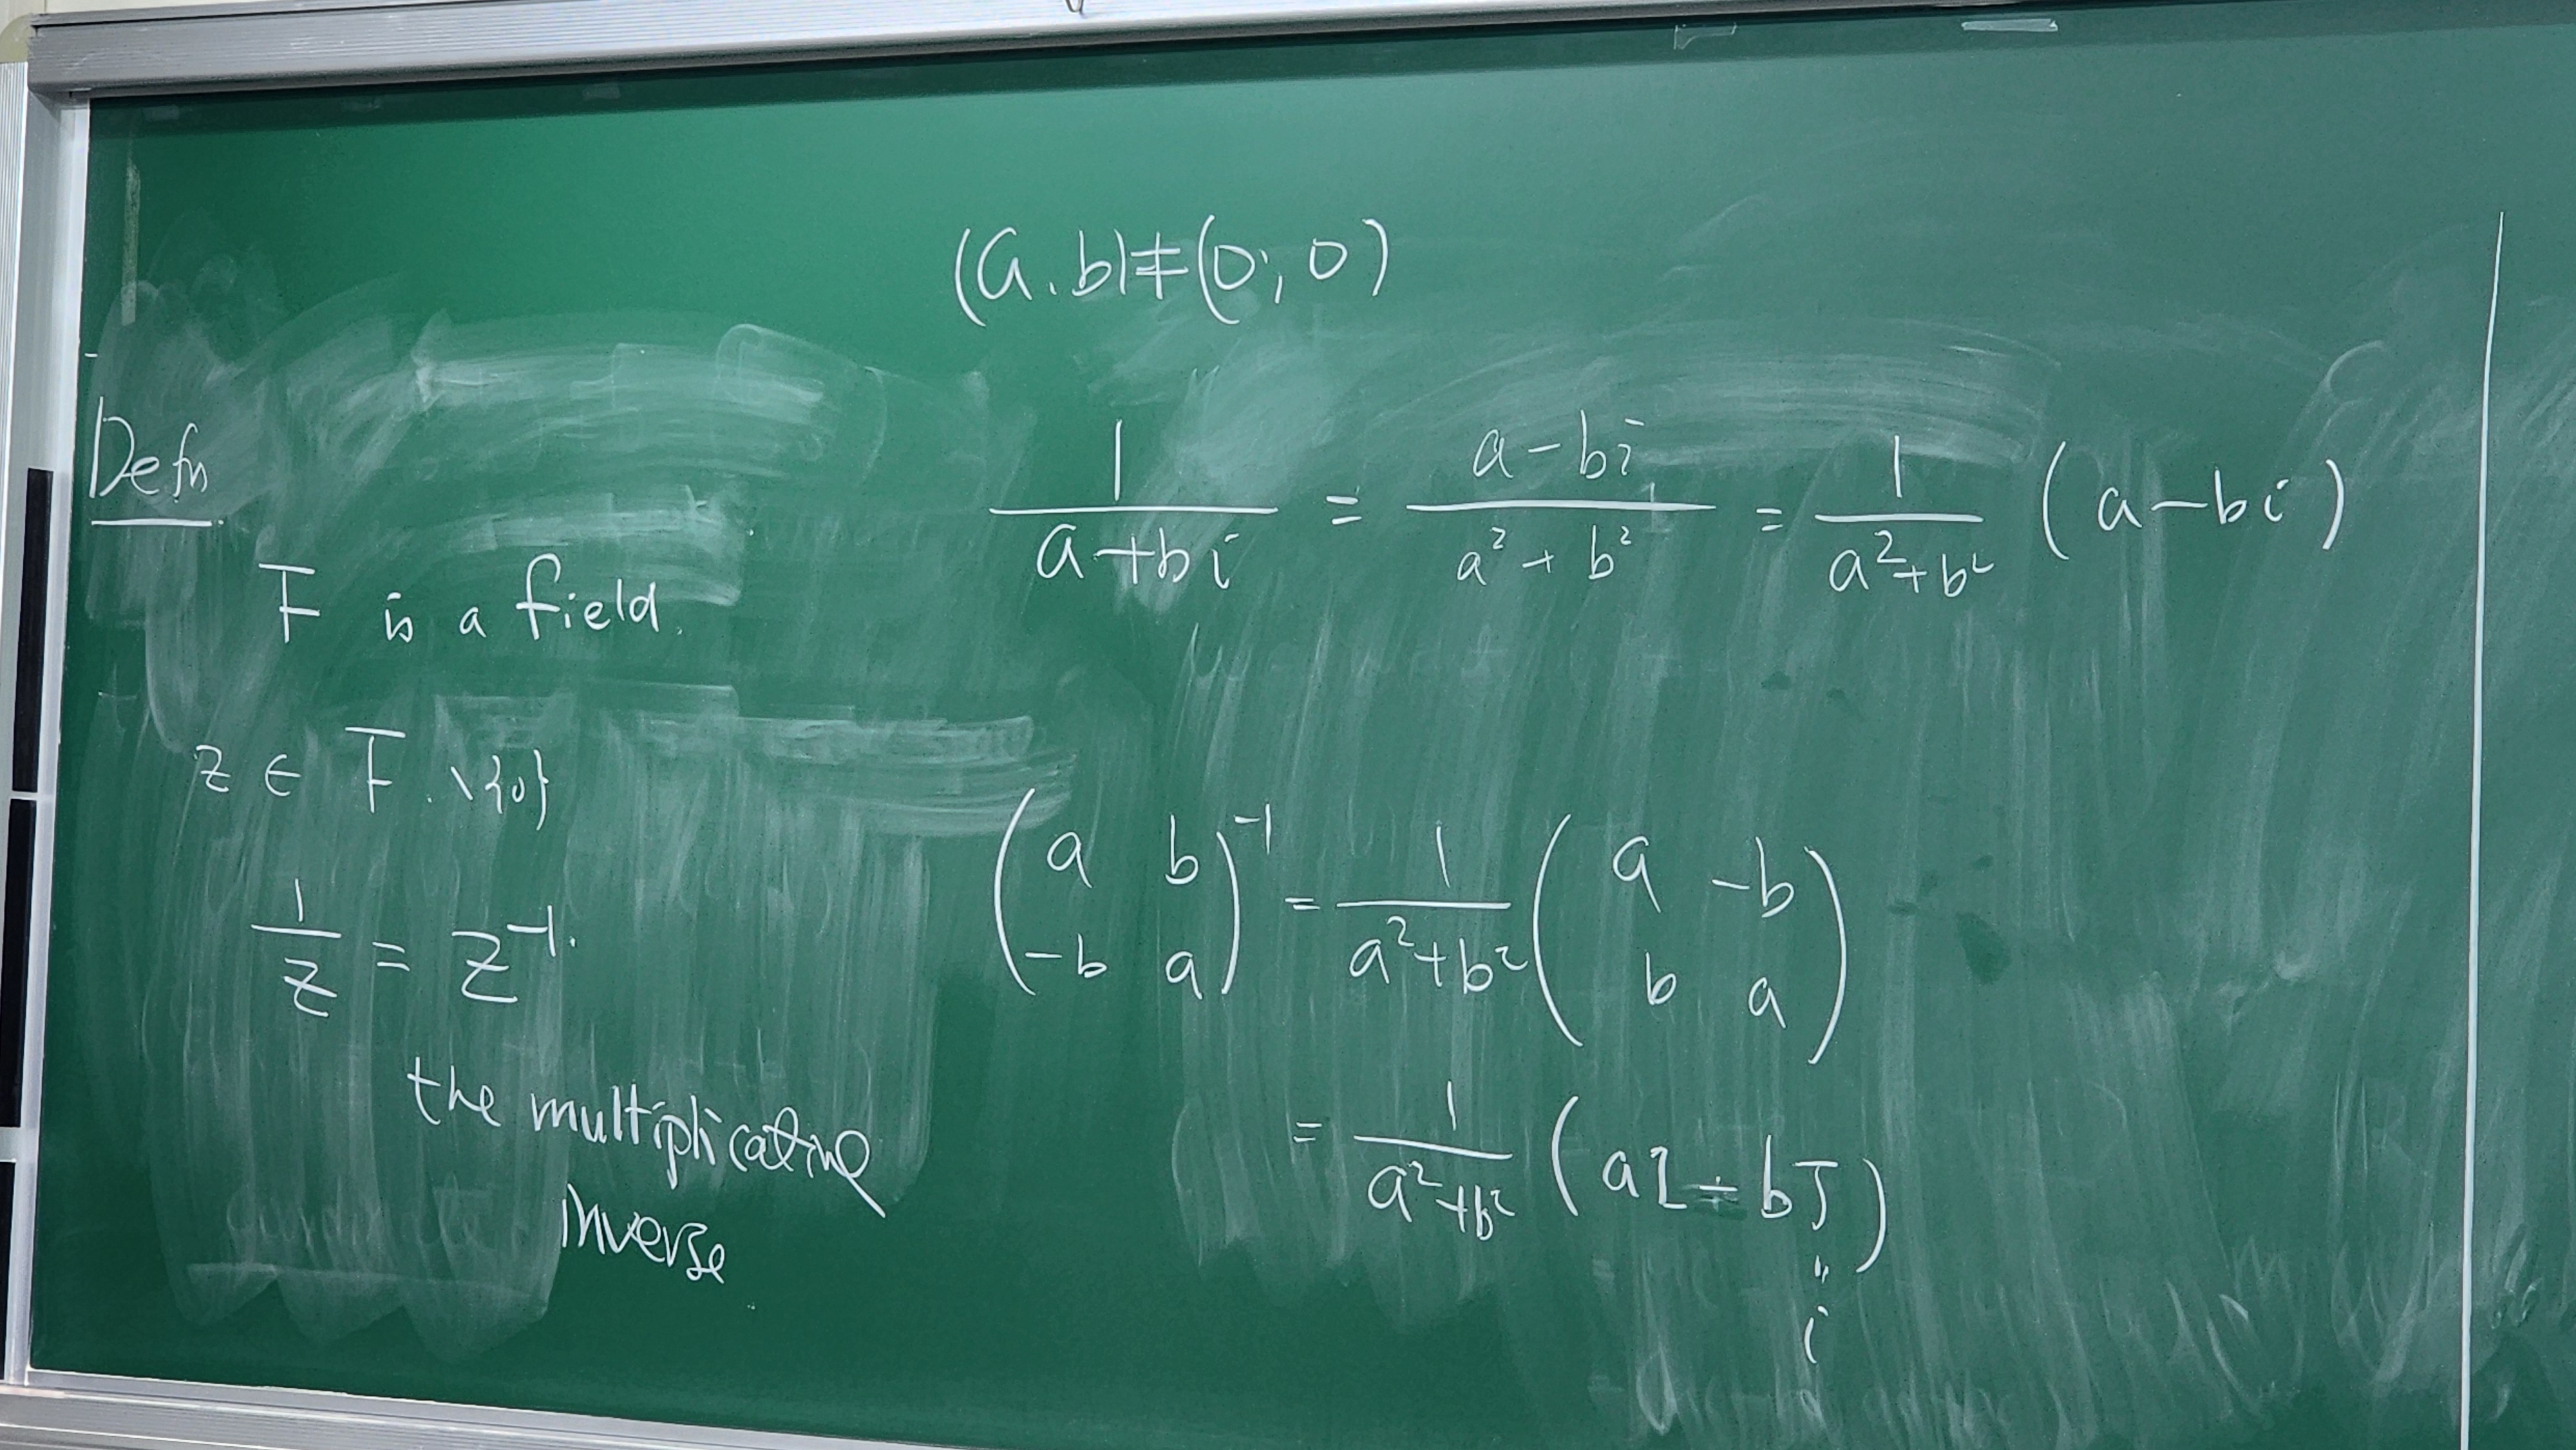 Defn
F is a field.
z ∈ F \{0}
1/z = z⁻¹.
the multiplicative
inverse
(a.b)≠(0,0)
1/(a+bi) = (a-bi)/(a²+b²) = 1/(a²+b²) (a-bi)
(a b; -b a)⁻¹ = 1/(a²+b²) (a -b; b a)
= 1/(a²+b²) (aI - bJ)
"
i